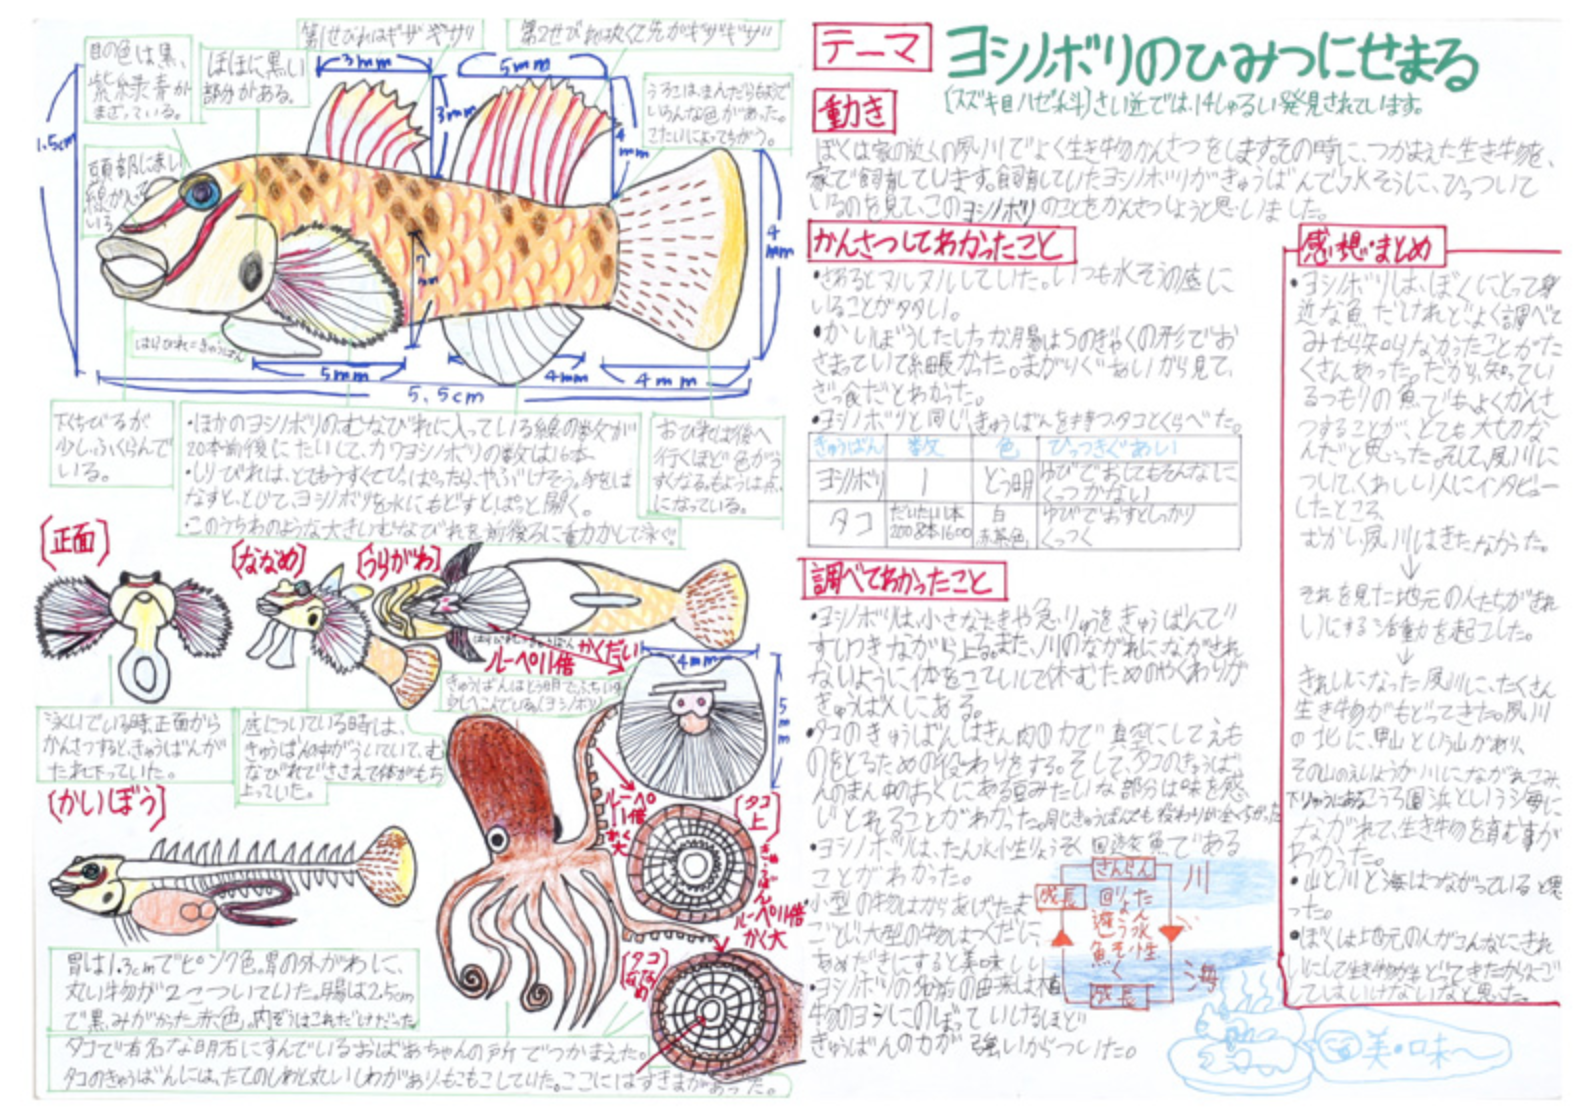 第1せびれはギザギザ
第2せびれは丸くて先がギザギザ
目の色は黒、
紫緑青が
まざっている。
ほほに黒い
部分がある。
うろこは、まんだらもようで
いろんな色があった。
こたいによってちがう。
頭部に赤い
線が入って
いる
3mm
5mm
1.5cm
3mm
4mm
7mm
4mm
はらびれ=きゅうばん
5mm
4mm
4mm
5.5cm
下くちびるが
少しふくらんで
いる。
・ほかのヨシノボリのむなびれに入っている線の数が
20本前後にたいして、カワヨシノボリの数は16本
・しりびれは、とてもうすくてひっぱったらやぶけそう。手をは
なすと、とじて、ヨシノボリを水にもどすとぱっと開く。
・このうちわのような大きいむなびれを前後ろに動かして泳ぐ。
おびれは後へ
行くほど色がう
すくなる。もようは点
になっている。
(正面)
(ななめ)
(うらがわ)
かくだい
ルーペ11倍
4mm
5mm
きゅうばんはとう明で
泳いでいる時、正面から
かんさつすると、きゅうばんが
たれ下っていた。
底についている時は、
きゅうばんの中がういていて、む
なびれでささえて体がもち
上っていた。
(かいぼう)
ルーペ
11倍
かく大
(タコ上)
きゅうばん
ルーペ11倍
かく大
(タコななめ)
胃は1.3cmでピンク色。胃の外がわに、
丸い物が2こついていた。腸は2.5cm
で黒みがかった赤色。内ぞうはこれだけだった
タコで有名な明石にすんでいるおばあちゃんの所でつかまえた。
タコのきゅうばんには、たてのしわと丸いしわがあり、もこもこしていた。ここにはすきまがあった。
テーマ
ヨシノボリのひみつにせまる
(スズキ目ハゼ科)さい近では、14しゅるい発見されています。
動き
ぼくは家の近くの夙川でよく生き物かんさつをします。その時に、つかまえた生き物を、
家で飼育しています。飼育していたヨシノボリがきゅうばんで水そうに、ひっついて
いるのを見て、このヨシノボリのことをかんさつしようと思いました。
かんさつしてわかったこと
・さわるとヌルヌルしていた。いつも水そうの底に
いることが多い。
・かいぼうしたしたら腸はSのぎゃくの形でお
さまっていて細長かった。まがりぐあいから見て、
ざっ食だとわかった。
・ヨシノボリと同じきゅうばんを持つタコとくらべた。
きゅうばん 数 色 ひっつきぐあい
ヨシノボリ 1 とう明 ゆびでおしてもそんなに
くっつかない
タコ だいたい1本 白 ゆびでおすとしっかり
200 8本1600 赤茶色 くっつく
調べてわかったこと
・ヨシノボリは、小さなたきや急りゅうをきゅうばんで
すいつきながら上る。また、川のながれにながされ
ないように体をこていして休むためのやくわりが
きゅうばんにある。
・タコのきゅうばんはきん肉の力で真空にしてえも
のをとるための役わりをする。そして、タコのきゅうば
んのまん中のおくにある豆みたいな部分は味を感
じとれることがわかった。同じきゅうばんでも役わりが全くちがった
・ヨシノボリは、たん水小生りょうそく回遊魚である
ことがわかった。
小型の物はからあげやたま
ごとじ、大型の物はつくだに、
あめだきにすると美味しい
・ヨシノボリの名前の由来は植
物のヨシにのぼっていけるほど
きゅうばんの力が強いからついた。
さんらん
川
成長
たん水性
りょうそく
回遊魚
海
成長
感想・まとめ
・ヨシノボリは、ぼくにとって身
近な魚だけれどよく調べて
みたら知らなかったことがた
くさんあった。だから、知ってい
るつもりの魚でもよくかんさ
つすることが、とても大切な
んだと思った。そして、夙川に
ついて、くわしい人にインタビュー
したところ
むかし夙川はきたなかった。
それを見た地元の人たちがきれ
いにする活動を起こした。
きれいになった夙川に、たくさん
生き物がもどってきた。夙川
の北に、甲山という山があり、
その山のえいようが川にながれこみ、
下りゅうにあるこうろ園浜という海に
ながれて、生き物を育む事が
わかった。
・山と川と海はつながっていると思
った。
・ぼくは地元の人がこんなにきれ
いにして生き物がもどってきたから
してはいけないなと思った。
美・口未〜